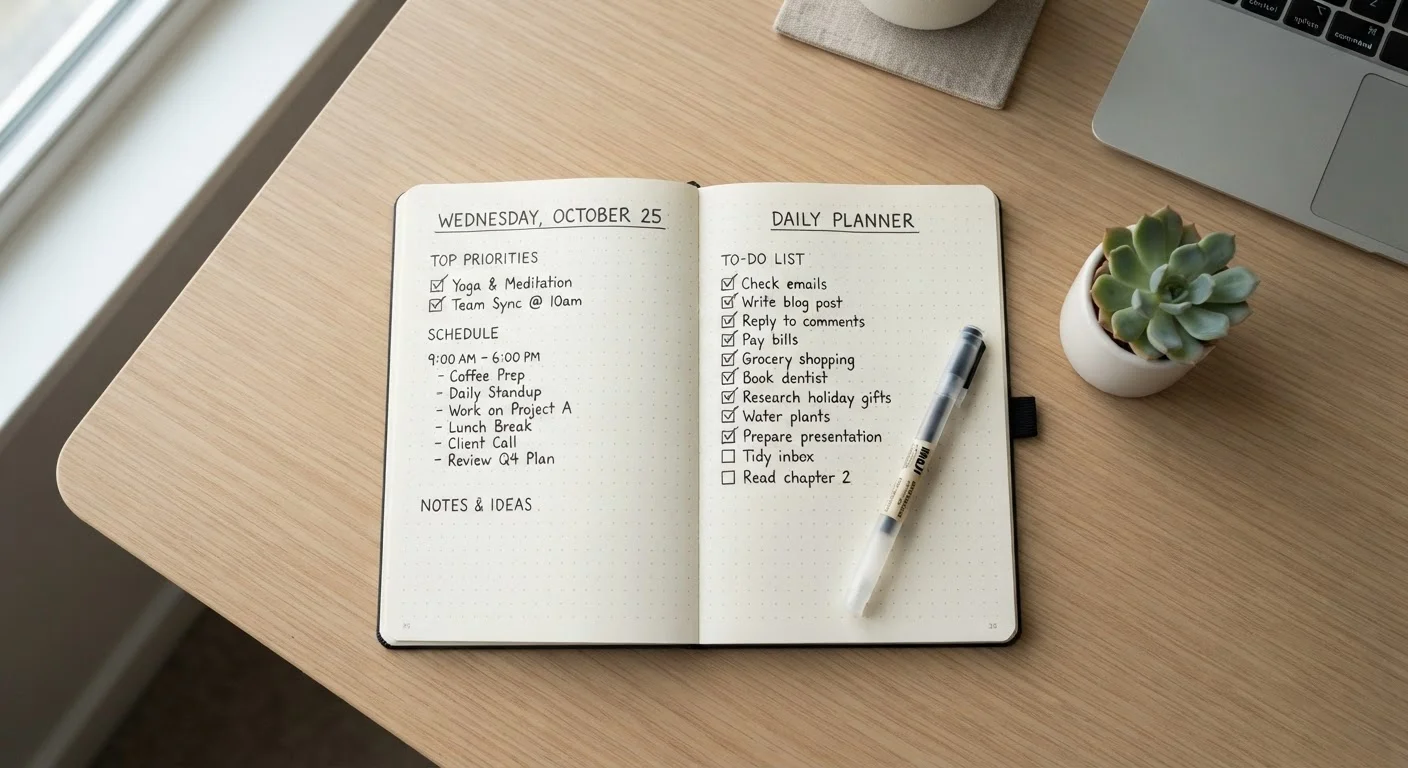 WEDNESDAY, OCTOBER 25
TOP PRIORITIES
Yoga & Meditation
Team Sync @ 10am
SCHEDULE
9:00 AM – 6:00 PM
- Coffee Prep
- Daily Standup
- Work on Project A
- Lunch Break
- Client Call
- Review Q4 Plan
NOTES & IDEAS
DAILY PLANNER
TO-DO LIST
Check emails
Write blog post
Reply to comments
Pay bills
Grocery shopping
Book dentist
Research holiday gifts
Water plants
Prepare presentation
Tidy inbox
Read chapter 2
control
option
command